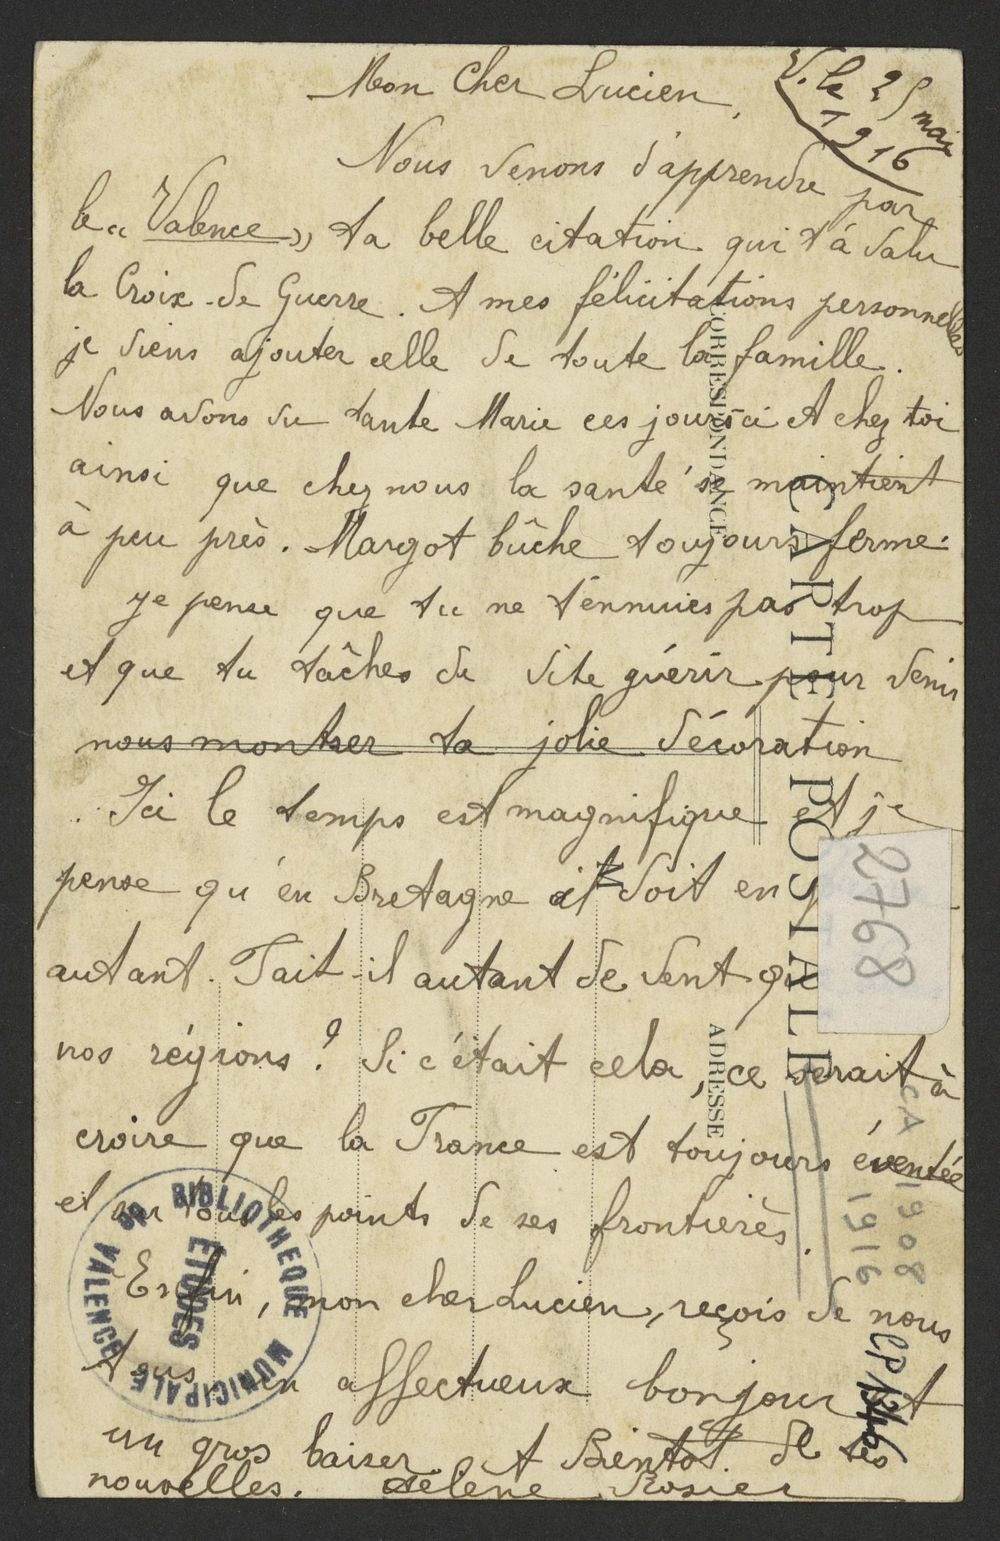 V. le 25 mai
1916
Mon Cher Lucien,
Nous venons d'apprendre par
le « Valence » ta belle citation qui t'a valu
la Croix de Guerre. A mes félicitations personnelles
je viens ajouter celle de toute la famille.
Nous avons vu tante Marie ces jours ci et chez toi
ainsi que chez nous la santé se maintient
à peu près. Margot bûche toujours ferme.
Je pense que tu ne t'ennuies pas trop
et que tu tâches de vite guérir pour venir
nous montrer ta jolie décoration
Ici le temps est magnifique et je
pense qu'en Bretagne il doit en
autant. Fait-il autant de vent
nos régions ? Si c'était cela, ce serait à
croire que la France est toujours éventée
et sur tous les points de ses frontières.
Enfin, mon cher Lucien, reçois de nous
tous un affectueux bonjour et
un gros baiser. A Bientôt de tes
nouvelles. Hélène Rosier
CARTE POSTALE
CORRESPONDANCE
ADRESSE
2768
CA 1908
1916
BIBLIOTHEQUE MUNICIPALE
DE VALENCE
ETUDES